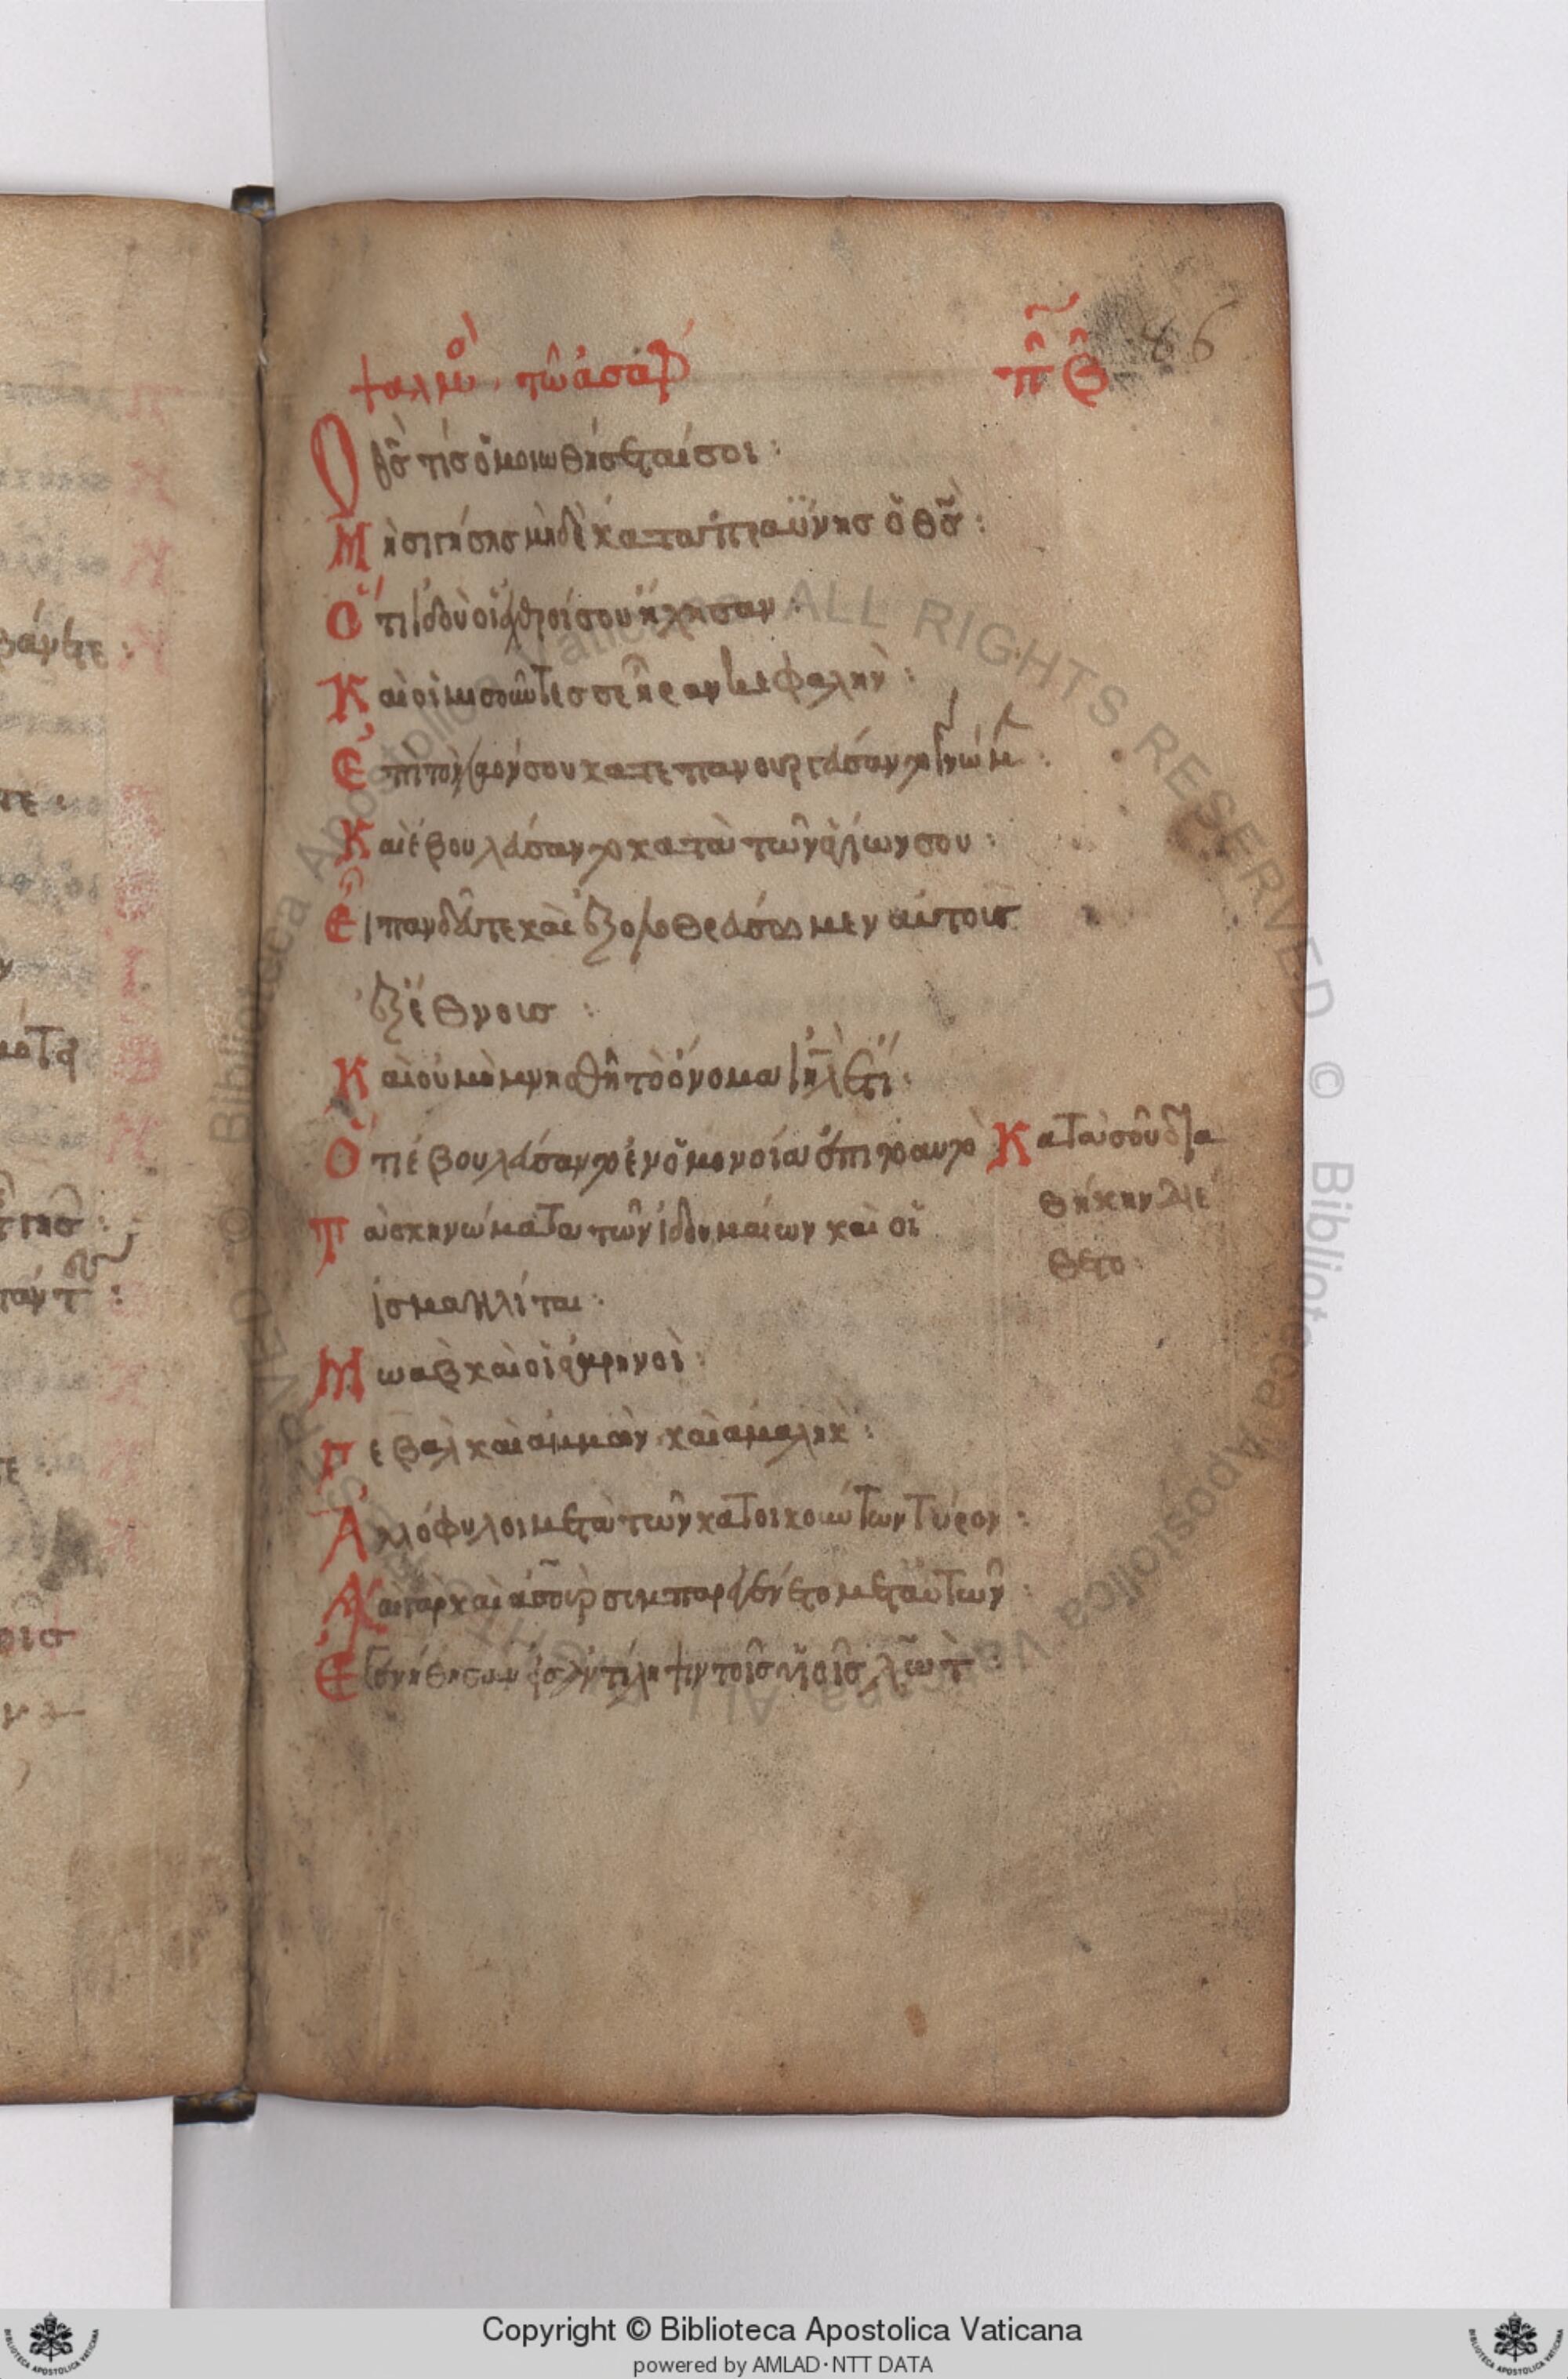 ψαλμο τῶ ἀσάφ πβ
86
Ο θς τίς ὁμοιωθήσεταί σοι :
Μὴ σιγήσης μὴδὲ καταπραΰνης ὁ θς :
Ὅτι ἰδοὺ οἱ ἐχθροί σου ἤχησαν :
Καὶ οἱ μισοῦντες σε ἦραν κεφαλὴν :
Ἐπι τὸν λαόν σου κατεπανουργεύσαντο γνώμ :
Καὶ ἐβουλεύσαντο κατὰ τῶν ἁγίων σου :
Εἶπαν δεῦτε καὶ ἐξολοθρεύσωμεν αὐτοὺς
ἐξ ἔθνοισ :
Καὶ οὐ μὴ μνησθῆ τὸ ὄνομα ιηλ ἔτι :
Ὅτι ἐβουλεύσαντο ἐν ὁμονοία ἐπιτοαυτὸ Κατὰ σοῦ δια
θήκην διέ
θετο :
Τὰ σκηνώματα τῶν ἰδουμαίων καὶ οἱ
ἰσμαηλίται :
Μωαβ καὶ οἱ ἀγαρηνοὶ :
Γεβαλ καὶ ἀμμὼν καὶ ἀμαλὴκ :
Ἀλλόφυλοι μετὰ τῶν κατοικούντων Τύρον :
Καὶ γὰρ καὶ ἀσοὺρ συμπαρεγένετο μεταυτῶν :
Ἐγενήθησαν εἰς ἀντίληψιν τοῖς υἱοῖς λὼτ :
ALL RIGHTS RESERVED © Biblioteca Apostolica Vaticana
Copyright © Biblioteca Apostolica Vaticana
powered by AMLAD·NTT DATA